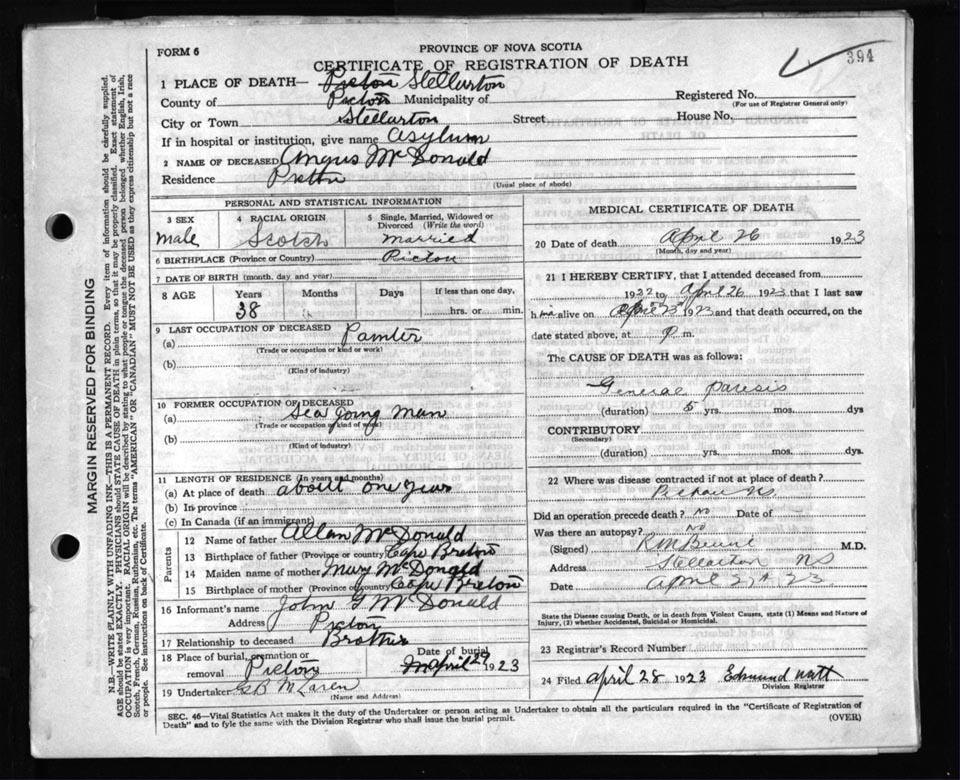 FORM 6
PROVINCE OF NOVA SCOTIA
CERTIFICATE OF REGISTRATION OF DEATH
394
1 PLACE OF DEATH— Picton Stellarton
County of Picton Municipality of
Registered No.
(For use of Registrar General only)
City or Town Stellarton Street House No.
If in hospital or institution, give name Asylum
2 NAME OF DECEASED Angus McDonald
Residence Picton
(Usual place of abode)
PERSONAL AND STATISTICAL INFORMATION
3 SEX
male
4 RACIAL ORIGIN
Scotch
5 Single, Married, Widowed or Divorced (Write the word)
Married
6 BIRTHPLACE (Province or Country) Picton
7 DATE OF BIRTH (month, day and year)
8 AGE Years Months Days If less than one day,
38 hrs. or min.
9 LAST OCCUPATION OF DECEASED
(a) Painter
(Trade or occupation or kind of work)
(b)
(Kind of industry)
10 FORMER OCCUPATION OF DECEASED
(a) Sea going man
(Trade or occupation or kind of work)
(b)
(Kind of industry)
11 LENGTH OF RESIDENCE (In years and months)
(a) At place of death about one year
(b) In province
(c) In Canada (if an immigrant)
Parents
12 Name of father Allan McDonald
13 Birthplace of father (Province or country) Cape Breton
14 Maiden name of mother Mary McDonald
15 Birthplace of mother (Province or country) Cape Breton
16 Informant's name John G McDonald
Address Picton
17 Relationship to deceased Brother
18 Place of burial, cremation or removal Picton
Date of burial
April 29 1923
19 Undertaker G B McLaren
(Name and Address)
MEDICAL CERTIFICATE OF DEATH
20 Date of death April 26 1923
(Month, day and year)
21 I HEREBY CERTIFY, that I attended deceased from
1922 to April 26 1923 that I last saw
him alive on April 25 1923 and that death occurred, on the
date stated above, at P m.
The CAUSE OF DEATH was as follows:
General paresis
(duration) 5 yrs. mos. dys
CONTRIBUTORY
(Secondary)
(duration) yrs. mos. dys
22 Where was disease contracted if not at place of death?
NS
Did an operation precede death? no Date of –
Was there an autopsy? no
(Signed) M.D.
Address Stellarton NS
Date April 27th 23
State the Disease causing Death, or in death from Violent Causes, state (1) Means and Nature of
Injury, (2) whether Accidental, Suicidal or Homicidal.
23 Registrar's Record Number
24 Filed April 28 1923 Edmund Watt
Division Registrar
SEC. 46—Vital Statistics Act makes it the duty of the Undertaker or person acting as Undertaker to obtain all the particulars required in the "Certificate of Registration of
Death" and to fyle the same with the Division Registrar who shall issue the burial permit.
(OVER)
MARGIN RESERVED FOR BINDING
N.B.—WRITE PLAINLY WITH UNFADING INK—THIS IS A PERMANENT RECORD. Every item of information should be carefully supplied.
AGE should be stated EXACTLY. PHYSICIANS should STATE CAUSE OF DEATH in plain terms, so that it may be properly classified. Exact statement of
OCCUPATION is very important. RACIAL ORIGIN will be described by stating to what people or tongue the deceased person belonged whether English, Irish,
Scotch, French, German, Russian, Ruthenian, etc. The terms "AMERICAN" OR "CANADIAN" MUST NOT BE USED as they express citizenship but not a race
or people. See instructions on back of Certificate.